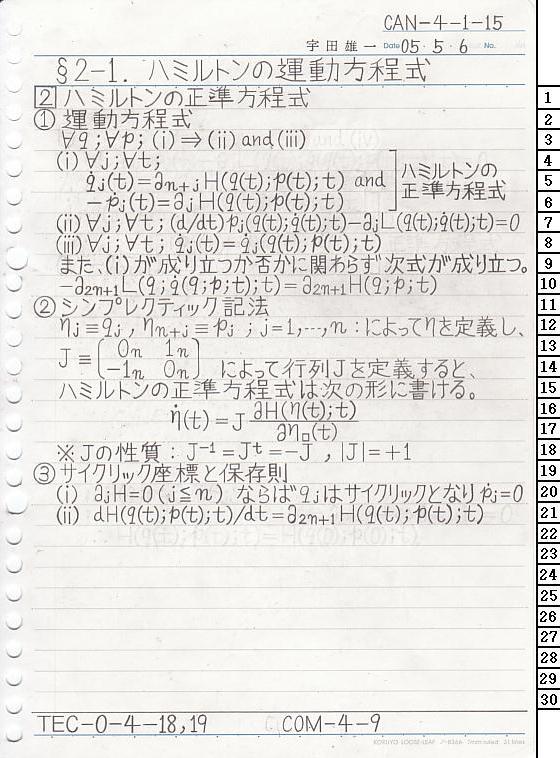 CAN-4-1-15
宇田雄一 Date 05・5・6 No.
§2-1. ハミルトンの運動方程式
2 ハミルトンの正準方程式
① 運動方程式
∀q;∀p; (i) ⇒ (ii) and (iii)
(i) ∀j;∀t;
q̇j(t)=∂n+jH(q(t);p(t);t) and
-ṗj(t)=∂jH(q(t);p(t);t)
ハミルトンの
正準方程式
(ii) ∀j;∀t; (d/dt)pj(q(t);q̇(t);t)-∂jL(q(t);q̇(t);t)=0
(iii) ∀j;∀t; q̇j(t)=q̇j(q(t);p(t);t)
また、(i)が成り立つか否かに関わらず次式が成り立つ。
-∂2n+1L(q;q̇(q;p;t);t)=∂2n+1H(q;p;t)
② シンプレクティック記法
ηj≡qj, ηn+j≡pj ; j=1,…,n : によってηを定義し、
J≡(0n 1n
-1n 0n) によって行列Jを定義すると、
ハミルトンの正準方程式は次の形に書ける。
η̇(t)=J ∂H(η(t);t)
∂η□(t)
※Jの性質: J-1=Jt=-J , |J|=+1
③ サイクリック座標と保存則
(i) ∂jH=0 (j≦n) ならばqjはサイクリックとなりṗj=0
(ii) dH(q(t);p(t);t)/dt=∂2n+1H(q(t);p(t);t)
TEC-0-4-18,19 COM-4-9
KOKUYO LOOSE-LEAF ノ-836A 7mm ruled 31 lines
1
2
3
4
5
6
7
8
9
10
11
12
13
14
15
16
17
18
19
20
21
22
23
24
25
26
27
28
29
30